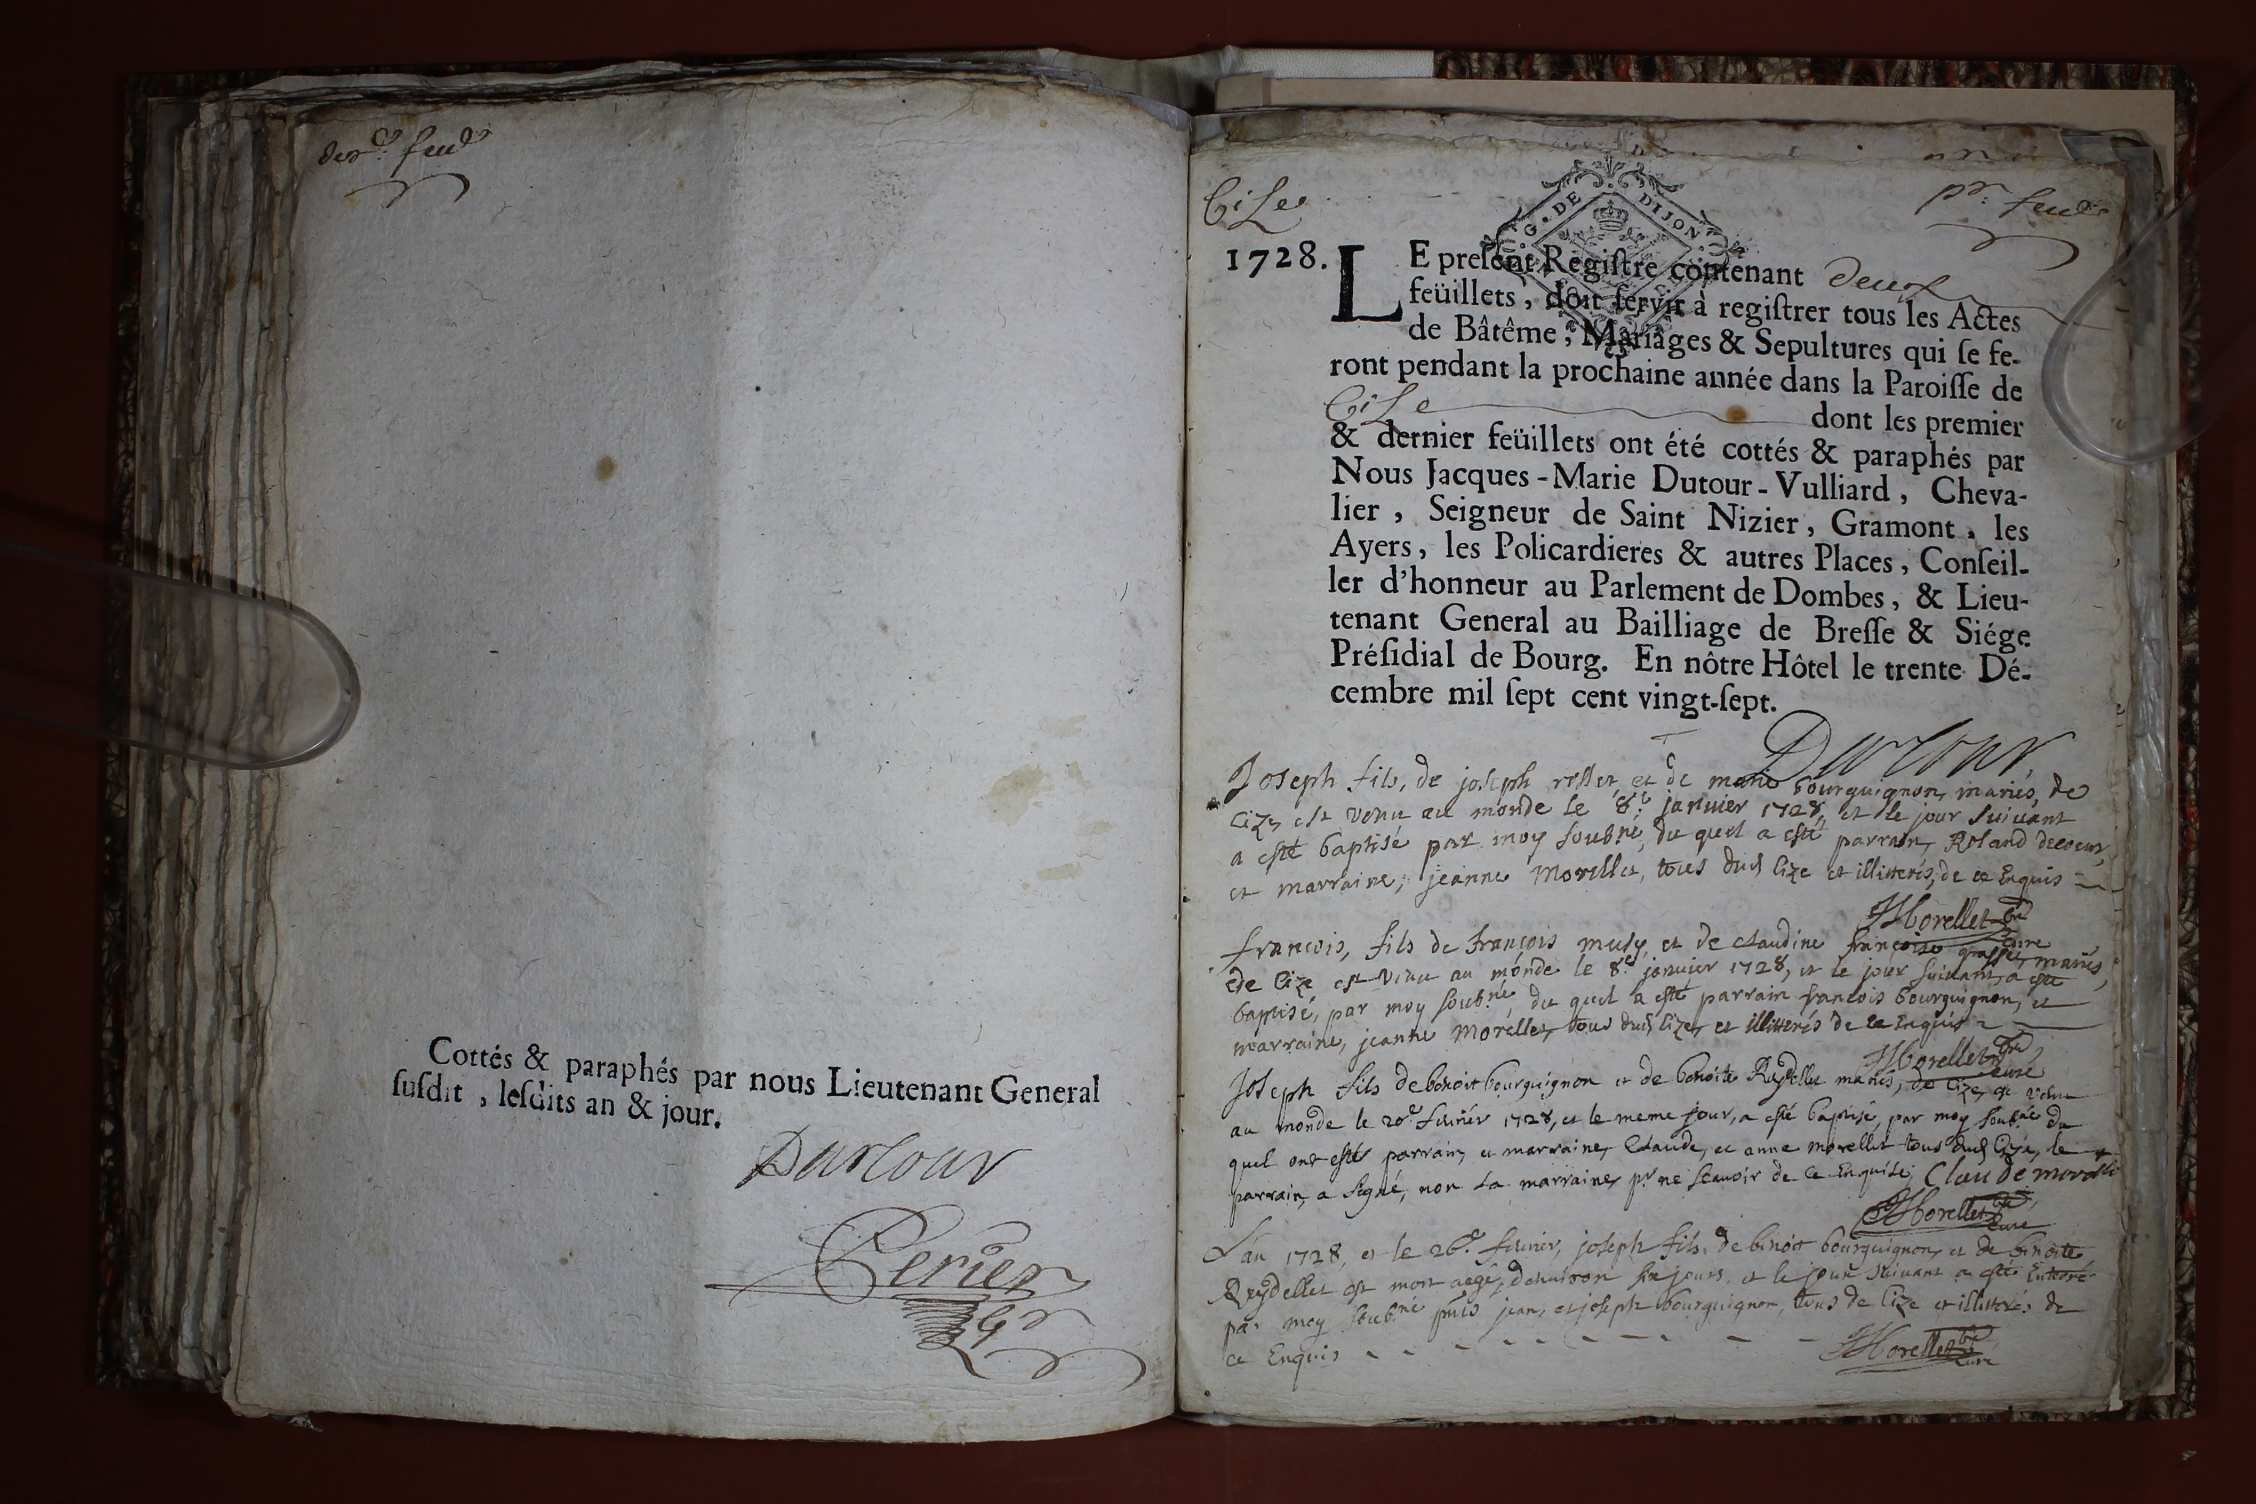 der. feu.
Cottés & paraphés par nous Lieutenant General
suſdit, leſdits an & jour.
Durtour
Perier
Gr
Cize
pr. feu.
G. DE DIJON
1728.
LE preſent Regiſtre contenant deux
feüillets, doit ſervir à regiſtrer tous les Actes
de Bâtême, Mariâges & Sepultures qui ſe fe-
ront pendant la prochaine année dans la Paroiſſe de
Cize dont les premier
& dernier feüillets ont été cottés & paraphés par
Nous Jacques-Marie Dutour-Vulliard, Cheva-
lier, Seigneur de Saint Nizier, Gramont, les
Ayers, les Policardieres & autres Places, Conſeil-
ler d'honneur au Parlement de Dombes, & Lieu-
tenant General au Bailliage de Breſſe & Siége
Préſidial de Bourg. En nôtre Hôtel le trente Dé-
cembre mil ſept cent vingt-ſept.
Durtour
Joseph fils, de joseph et de marie bourguignon, mariés, de
Cize est venu au monde le 8e janvier 1728, et le jour suivant
a esté baptisé par moy soubné, du quel a esté parrain, Roland decoeur,
et marraine, jeanne Morellet, tous dud Cize et illitterés, de ce Enquis
Morellet Curé
francois, fils de francois musy, et de claudine françoise mariés,
de Cize est venu au monde le 8e janvier 1728, et le jour suivant, a esté
baptisé, par moy soubné du quel a esté parrain francois bourguignon, et
marraine, jeanne Morellet, tous dud Cize, et illitterés de ce Enquis
Morellet Curé
Joseph fils de benoit bourguignon et de benoite Reydellet mariés, de Cize, est venu
au monde le 20e fevrier 1728, et le meme jour, a esté baptisé, par moy soubné du
quel ont esté parrain, et marraine, Claude, et anne morellet tous dud Cize, le
parrain, a signé, non la marraine, pr ne scavoir de ce Enquise, Claude morellet
Morellet Curé
L'an 1728, et le 26e fevrier, joseph fils, de benoit bourguignon, et de benoite
Reydellet est mort aagé, denviron six jours, et le jour suivant a esté Enterré
par moy soubné pnts jean, et joseph bourguignon, tous de Cize et illitterés de
ce Enquis
Morellet Curé